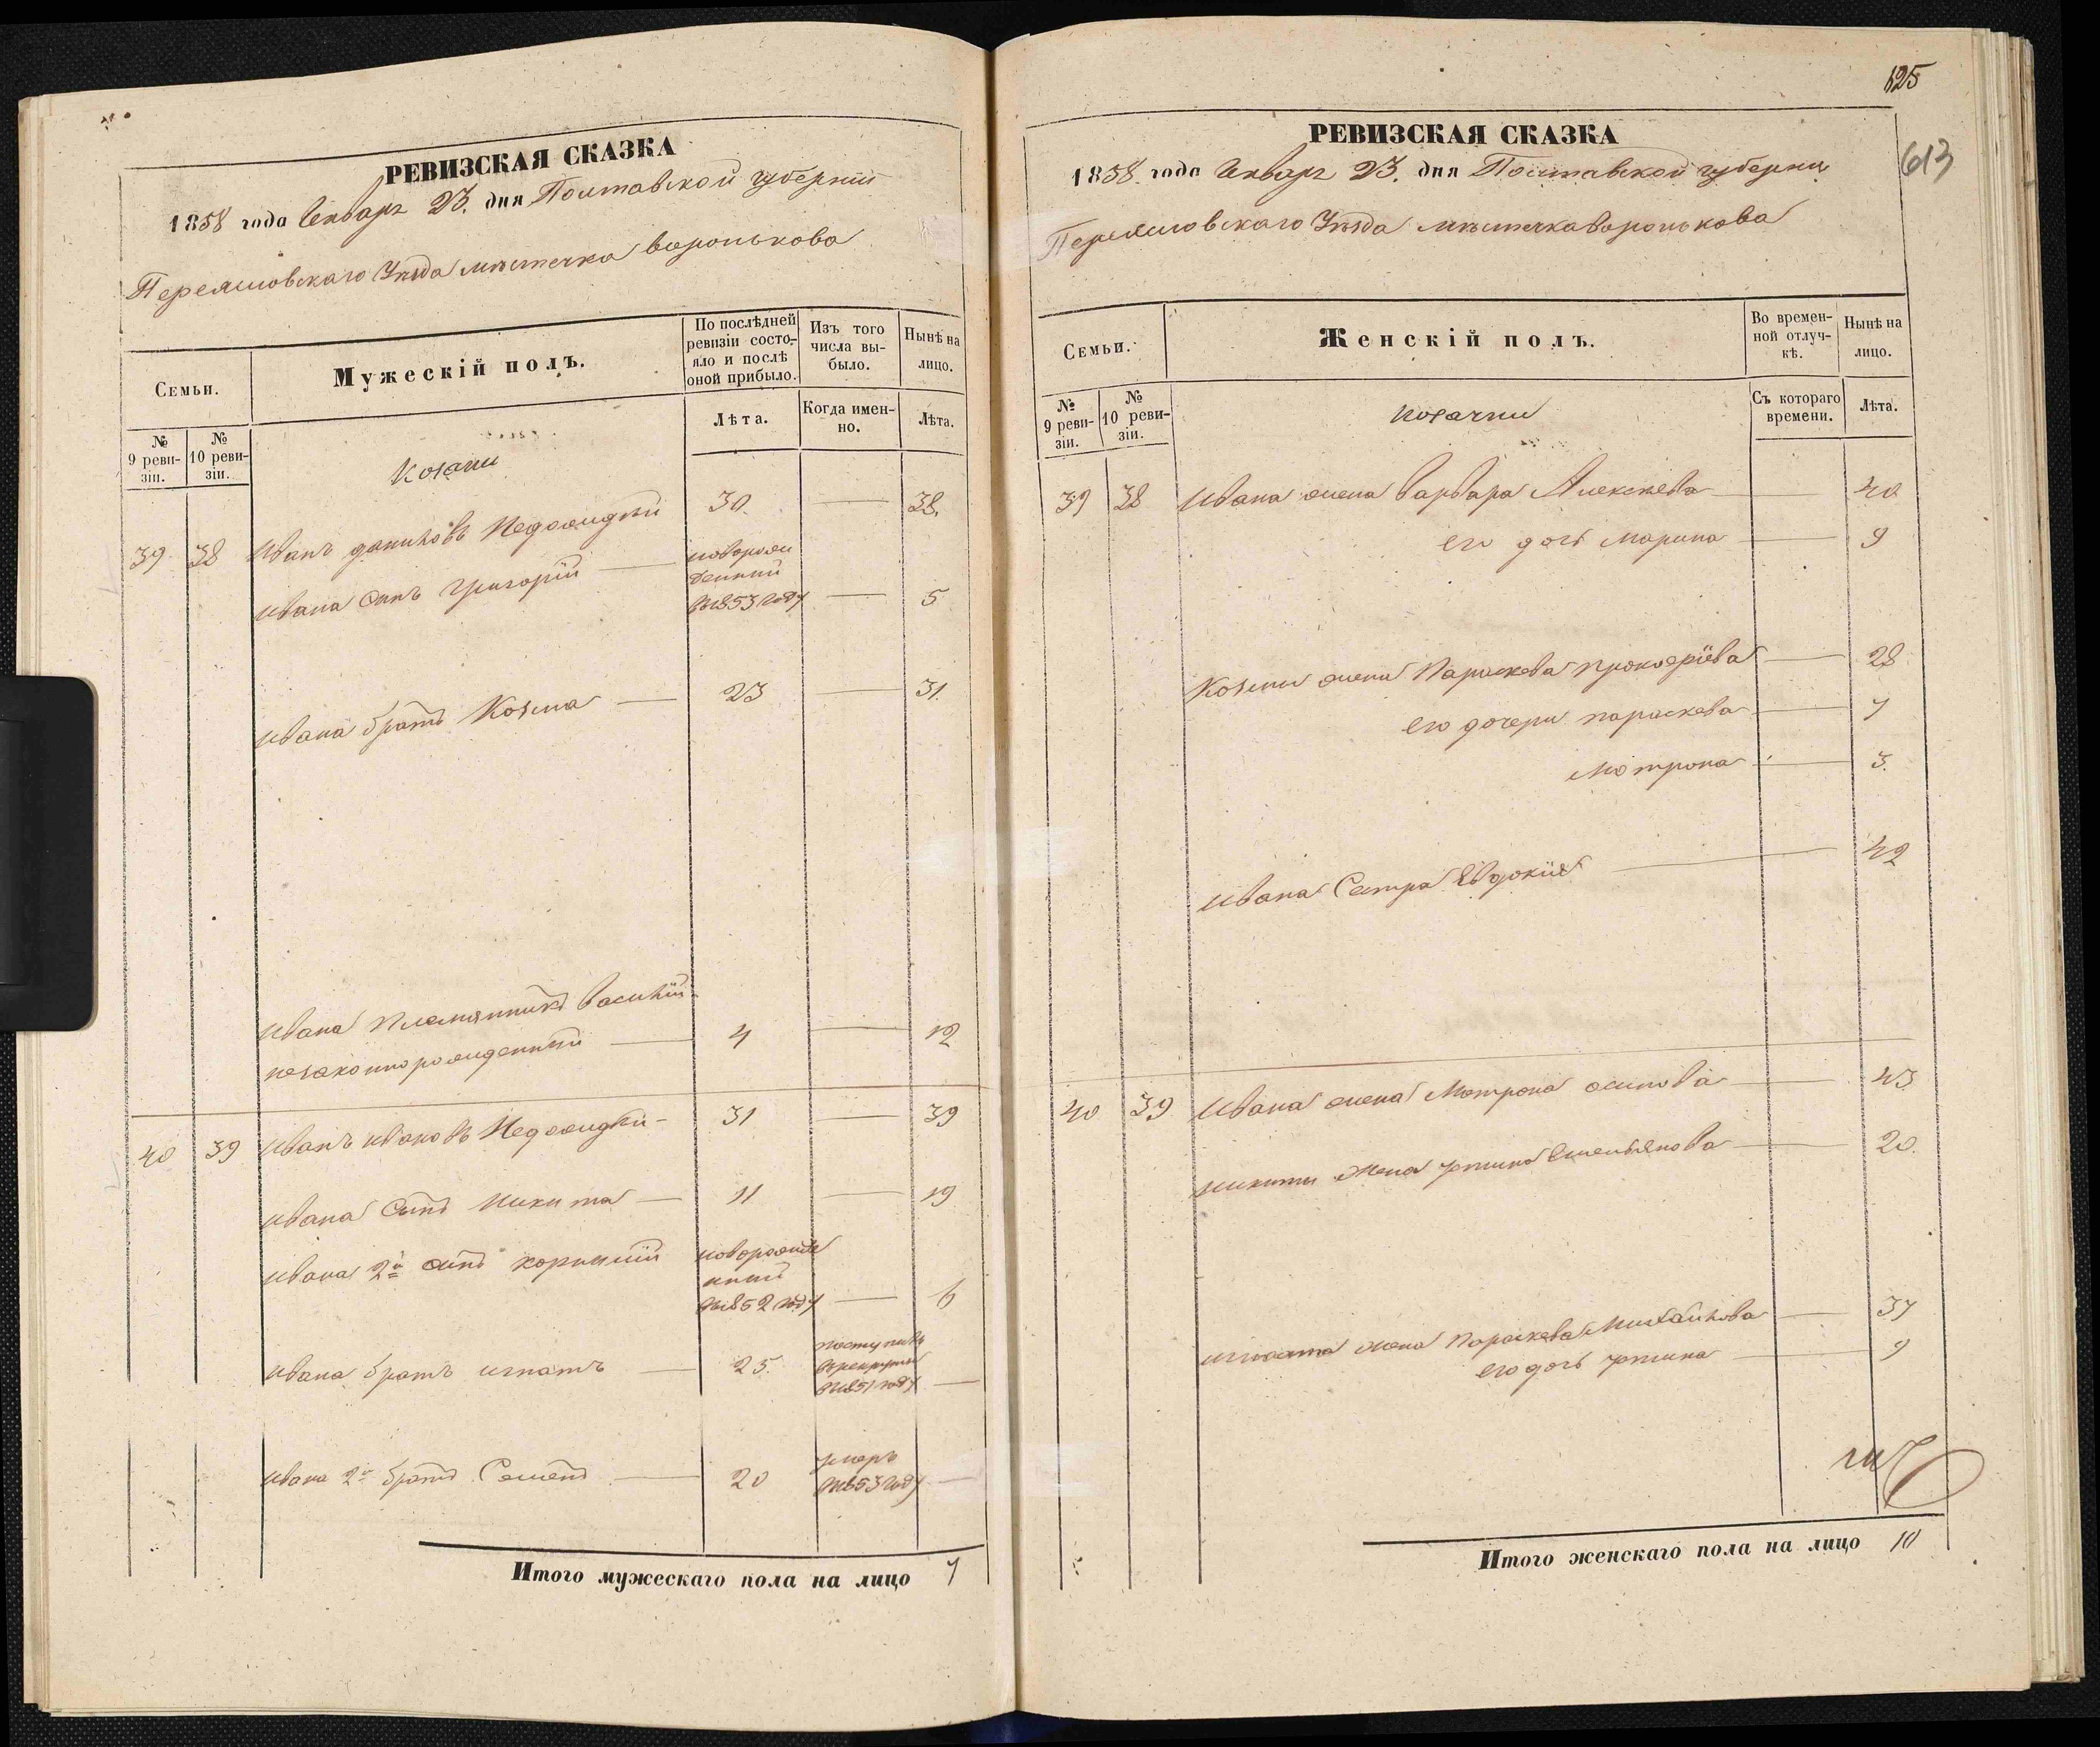 РЕВИЗСКАЯ СКАЗКА
1858 года Генваря 23. дня Полтавской губернии
Переясловскаго Уезда местечка Воронькова
Семьи.
Мужескій полъ.
По послѣдней ревизіи состо-
яло и послѣ
оной прибыло.
Изъ того
числа вы-
было.
Нынѣ на
лицо.
№
9 реви-
зіи.
№
10 реви-
зіи.
Лѣта.
Когда имен-
но.
Лѣта.
Козаки
39 38 Иванъ Даниловъ 30. 38.
Ивана Сынъ Григорій новорож
денный
в 1853 году 5
Ивана братъ Козма 23 31.
Ивана Племянникъ Василій
незаконнорожденный 4 12
40 39 Иванъ Ивановъ 31 39
Ивана Сынъ Никита 11 19
Ивана 2й сынъ Корнилій новорожде
нный
в 1852 году 6
Ивана братъ Игнатъ 25. поступилъ
в рекруты
в 1851 году
Ивана 2й братъ Семенъ 20 умеръ
в 1853 году
Итого мужескаго пола на лицо 7
125
613
РЕВИЗСКАЯ СКАЗКА
1858. года Генваря 23. дня Полтавской губернии
Переясловскаго Уезда местечка Воронькова
Семьи.
Женскій полъ.
Во времен-
ной отлуч-
кѣ.
Нынѣ на
лицо.
№
9 реви-
зіи.
№
10 реви-
зіи.
Съ котораго
времени.
Лѣта.
Козачки
39 38 Ивана жена Варвара Алексеева 40
его дочь Марина 9
Козмы жена Параскева Прокофіева 28
его дочери Параскева 7
Мотрона 3.
Ивана Сестра Евдокия 42
40 39 Ивана жена Мотрона Осипова 43
Никиты Жена Устина Емельянова 20.
Игната жена Параскева Михайлова 37
его дочь Устина 9
Итого женскаго пола на лицо 10